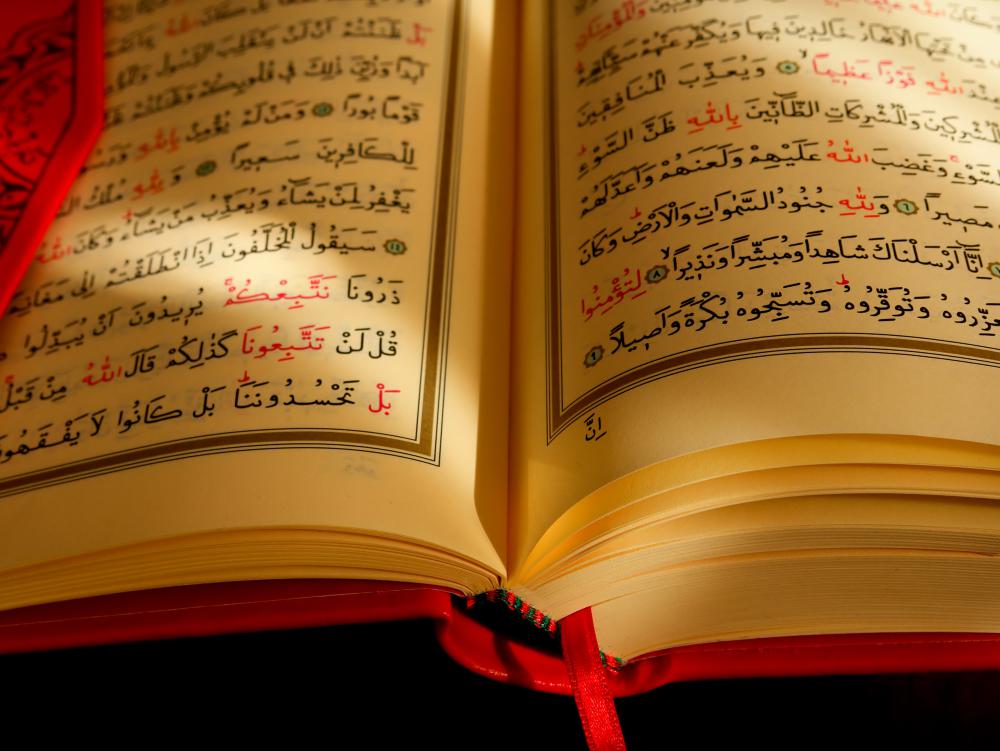 مِنْ تَحْتِهَا الْاَنْهَارُ خَالِدِينَ فِيهَا وَيُكَفِّرَ عَنْهُمْ سَيِّاٰتِهِمْ
عِنْدَ اللّٰهِ فَوْزًا عَظِيمًا ۝ وَيُعَذِّبَ الْمُنَافِقِينَ
وَالْمُشْرِكِينَ وَالْمُشْرِكَاتِ الظَّٓانِّينَ بِاللّٰهِ ظَنَّ السَّوْءِ
السَّوْءِ وَغَضِبَ اللّٰهُ عَلَيْهِمْ وَلَعَنَهُمْ وَاَعَدَّ لَهُمْ
مَصِيرًا ٦ وَلِلّٰهِ جُنُودُ السَّمٰوَاتِ وَالْاَرْضِ وَكَانَ
اِنَّٓا اَرْسَلْنَاكَ شَاهِدًا وَمُبَشِّرًا وَنَذِيرًا ٨ لِتُؤْمِنُوا
وَتُعَزِّرُوهُ وَتُوَقِّرُوهُ وَتُسَبِّحُوهُ بُكْرَةً وَاَصِيلًا ٩
اِنَّ
بَلْ ظَنَنْتُمْ اَنْ لَنْ يَنْقَلِبَ الرَّسُولُ
اَبَدًا وَزُيِّنَ ذٰلِكَ فِى قُلُوبِكُمْ وَظَنَنْتُمْ
قَوْمًا بُورًا ۝ وَمَنْ لَمْ يُؤْمِنْ بِاللّٰهِ
لِلْكَافِرِينَ سَعِيرًا ۝ وَلِلّٰهِ مُلْكُ
يَغْفِرُ لِمَنْ يَشَٓاءُ وَيُعَذِّبُ مَنْ يَشَٓاءُ وَكَانَ اللّٰهُ
۝ سَيَقُولُ الْمُخَلَّفُونَ اِذَا انْطَلَقْتُمْ اِلٰى مَغَانِمَ
ذَرُونَا نَتَّبِعْكُمْ يُرِيدُونَ اَنْ يُبَدِّلُوا
قُلْ لَنْ تَتَّبِعُونَا كَذٰلِكُمْ قَالَ اللّٰهُ مِنْ قَبْلُ
بَلْ تَحْسُدُونَنَا بَلْ كَانُوا لَا يَفْقَهُونَ